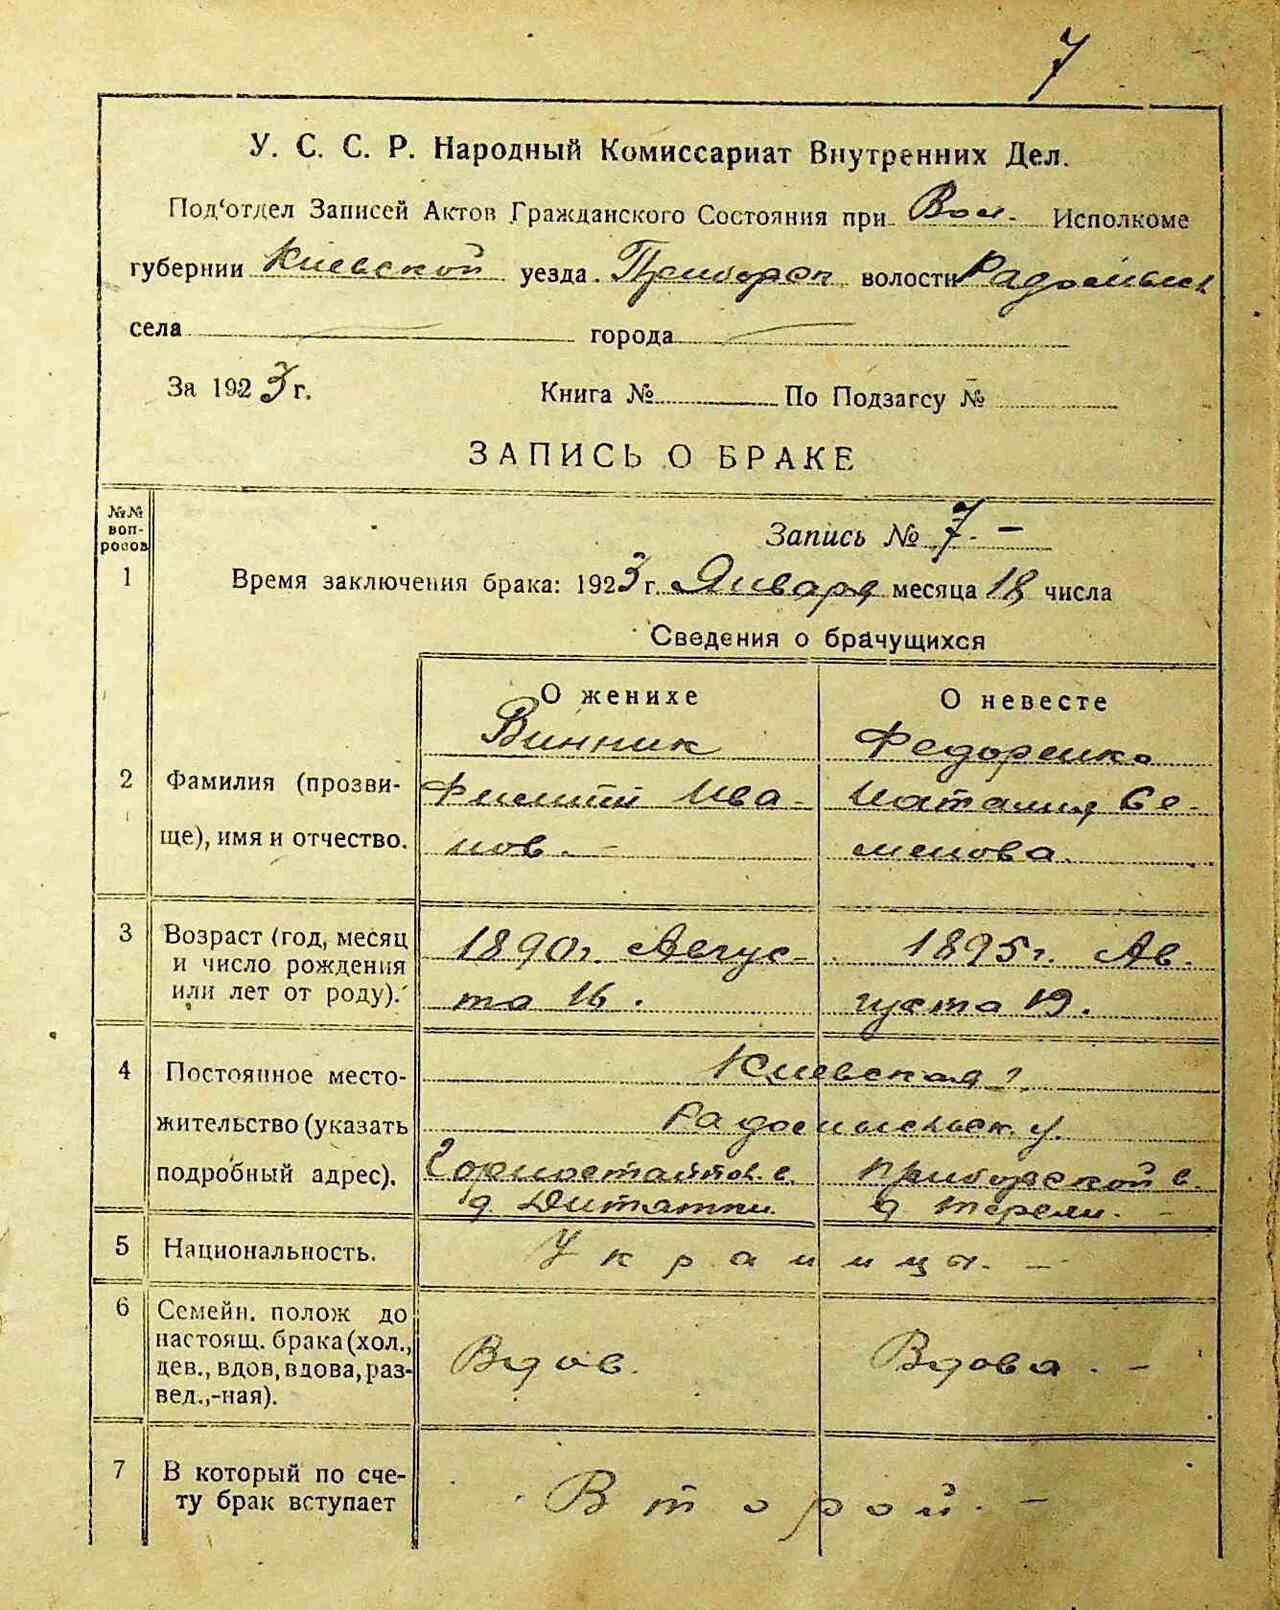 7
У. С. С. Р. Народный Комиссариат Внутренних Дел.
Под‘отдел Записей Актов Гражданского Состояния при Вол. Исполкоме
губернии Киевской уезда Приборск волости Радомысл
села города
За 1923 г. Книга № По Подзагсу №
ЗАПИСЬ О БРАКЕ
№№ вопросов
Запись № 7. –
1 Время заключения брака: 1923 г. Января месяца 18 числа
Сведения о брачущихся
О женихе О невесте
Винник Федоренко
2 Фамилия (прозви- Филипп Ива- Наталия Се-
ще), имя и отчество. нов. – менова
3 Возраст (год, месяц 1890 г. Авгус- 1895 г. Ав-
и число рождения
или лет от роду). та 16. густа 19.
4 Постоянное место- Киевская г.
жительство (указать Радомысльск. у.
подробный адрес). Горностайпол. в. Приборской в.
д. Дитятки. д.
5 Национальность. Украинцы. –
6 Семейн. полож до
настоящ. брака (хол.,
дев., вдов, вдова, раз- Вдов. Вдова. –
вед.,-ная).
7 В который по сче-
ту брак вступает Второй. –